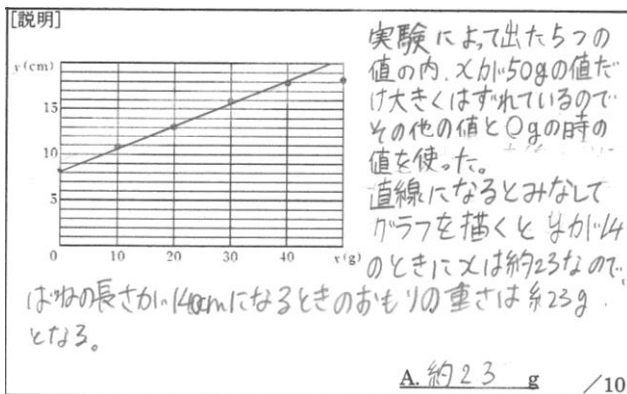 [説明]
y(cm)
15
10
5
0
10
20
30
40
x(g)
実験によって出た5つの
値の内、xが50gの値だ
け大きくはずれているので
その他の値と0gの時の
値を使った。
直線になるとみなして
グラフを描くとyが14
のときにxは約23なので、
ばねの長さが14cmになるときのおもりの重さは約23g
となる。
A. 約23 g /10